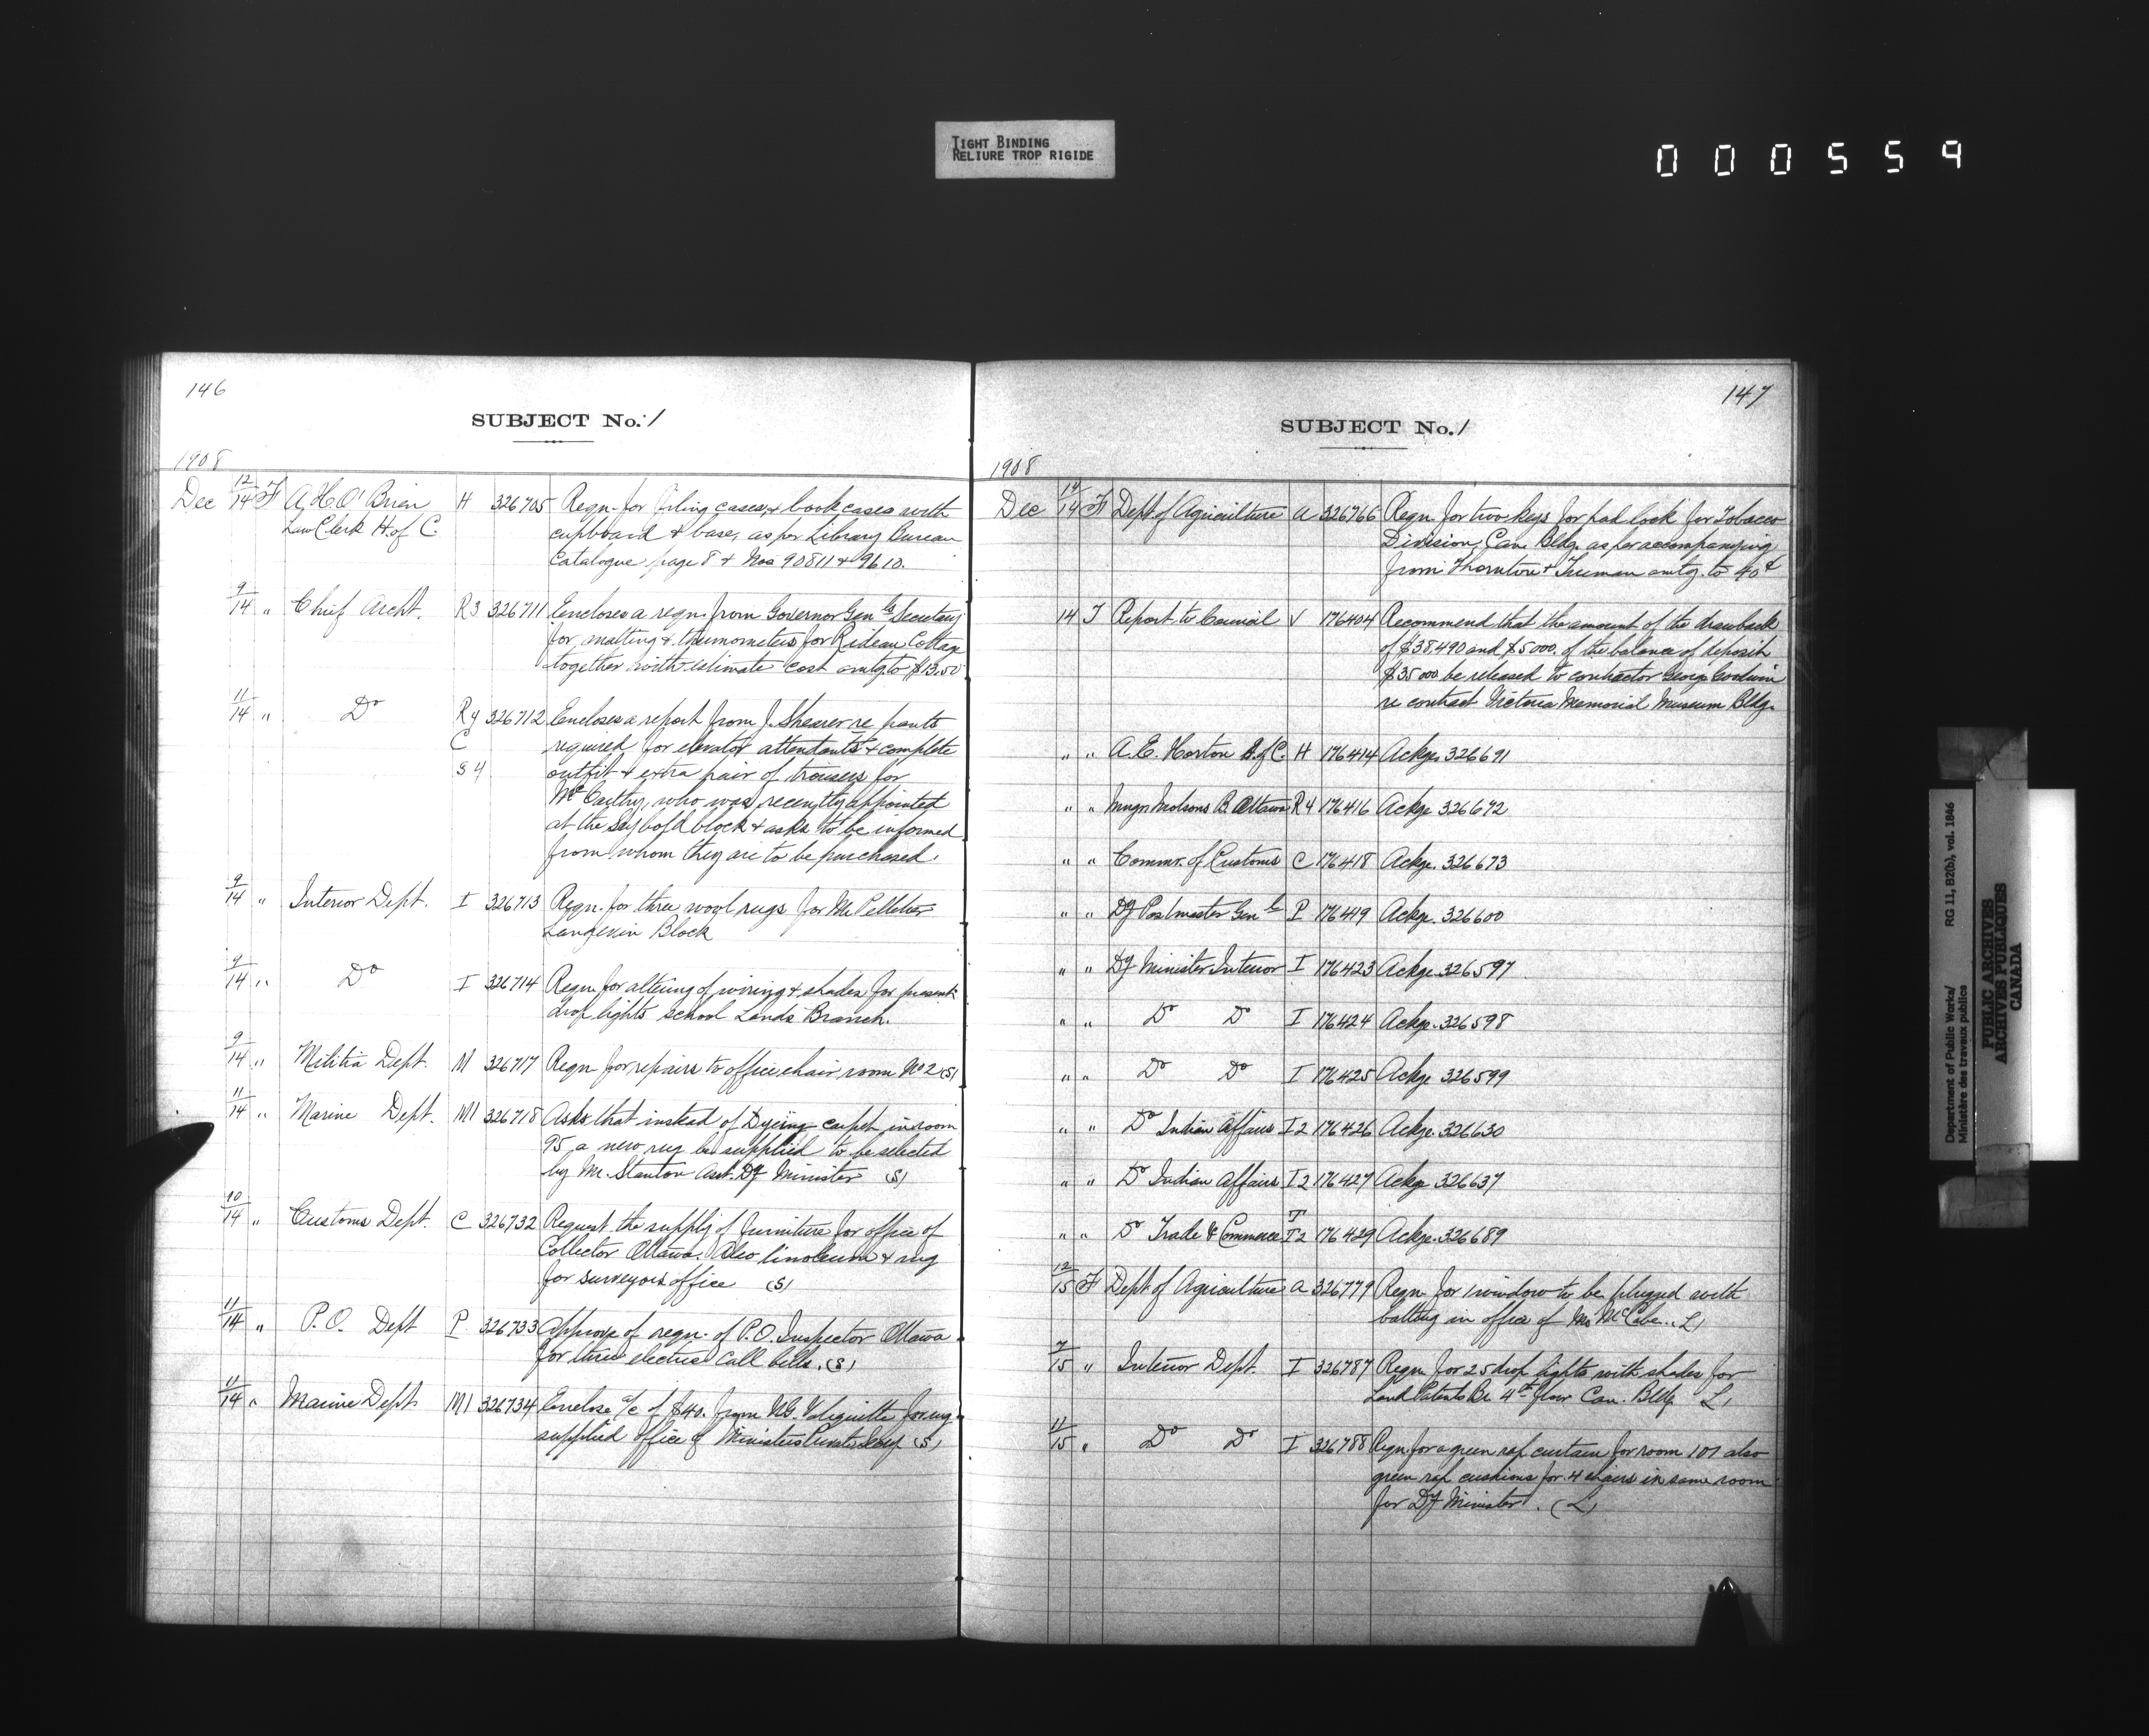 TIGHT BINDING
RELIURE TROP RIGIDE
000559
146
SUBJECT No. 1
1908
Dec 12/14 F A.H.O'Brien H 326705 Reqn. for filing cases & book cases with
Law Clerk H. of C. cupboard & base, as per Library Bureau
Catalogue page 8 & Nos 90811 & 9610.
9/14 " Chief Archt. R3 326711 Encloses a reqn. from Governor Genls Secretary
for matting & thermometers for Rideau Cottage
together with estimate cost amtg. to $13.50
11/14 " Do R4 326712 Encloses a report from J. Shearer re pants
C required for elevator attendants & complete
S4 outfit & extra pair of trousers for
McCarthy, who was recently appointed
at the Seybold block & asks to be informed
from whom they are to be purchased.
9/14 " Interior Dept. I 326713 Reqn. for three wool rugs for Mr Pelletier
Langevin Block
9/14 " Do I 326714 Reqn. for altering of wiring & shades for present
drop lights School Lands Branch.
9/14 " Militia Dept. M 326717 Reqn for repairs to office chair, room No 2 (S)
11/14 " Marine Dept. M1 326718 Asks that instead of Dyeing carpet in room
95, a new rug be supplied to be selected
by Mr. Stanton Asst. Dy Minister (S)
10/14 " Customs Dept. C 326732 Request the supply of furniture for office of
Collector Ottawa. Also linoleum & rug
for Surveyors office (S)
11/14 " P.O. Dept P 326733 Approve of reqn. of P.O. Inspector Ottawa
for three electric call bells. (S)
11/14 " Marine Dept. M1 326734 Enclose a/c of $40. from N.G. Valiquette for rug
supplied office of Ministers Private Secy (S)
147
SUBJECT No. 1
1908
Dec 14/14 F Dept. of Agriculture A 326766 Reqn. for two keys for pad lock for Tobacco
Division, Can. Bldg. as per accompanying
from Thornton & Truman amtg. to 40¢
14 T Report to Council V 176404 Recommend that the amount of the drawback
of $38,490 and $5000. of the balance of deposit
$35000 be released to contractor George Goodwin
re contract Victoria Memorial Museum Bldg.
" " A.E. Horton H. of C. H 176414 Ackge. 326691
" " Mngr Molsons B. Ottawa R4 176416 Ackge 326672
" " Commr. of Customs C 176418 Ackge. 326673
" " Dy Postmaster Genl P 176419 Ackge. 326600
" " Dy Minister Interior I 176423 Ackge. 326597
" " Do Do I 176424 Ackge. 326598
" " Do Do I 176425 Ackge 326599
" " Do Indian Affairs I2 176426 Ackge. 326630
" " Do Indian Affairs I2 176427 Ackge 326637
" " Do Trade & Commerce T T2 176429 Ackge. 326689
12/15 F Dept of Agriculture A 326779 Reqn. for 1 window to be plugged with
batting in office of Mr McCabe.. L)
7/15 " Interior Dept. I 326787 Reqn for 25 drop lights with shades for
Land Patents Br. 4th floor Can. Bldg. L)
11/15 " Do Do I 326788 Reqn for a green rep curtain for room 107 also
green rep cushions for 4 chairs in same room
for Dy Minister. (L)
Department of Public Works/ RG 11, B2(b), vol. 1846
Ministère des travaux publics
PUBLIC ARCHIVES
ARCHIVES PUBLIQUES
CANADA